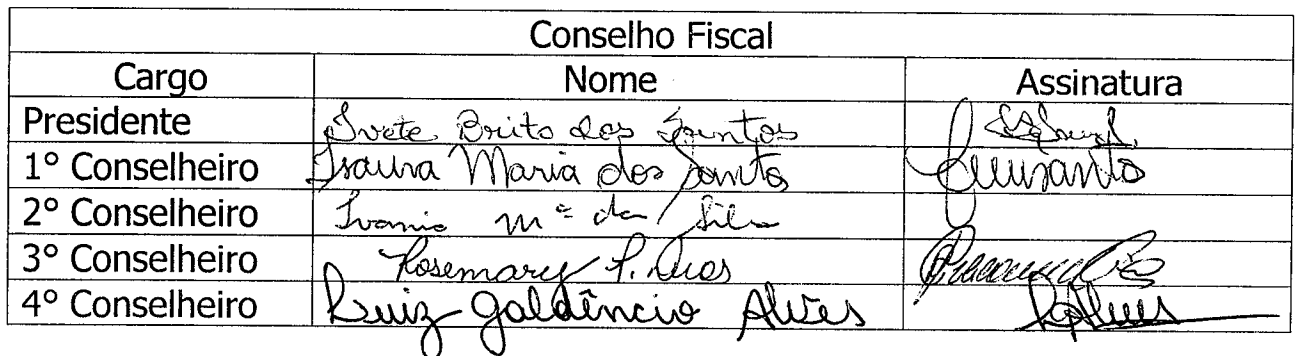 Conselho Fiscal
Cargo Nome Assinatura
Presidente Ivete Brito dos Santos
1º Conselheiro Isaura Maria dos Santos
2º Conselheiro Ivania Mª da Silva
3º Conselheiro Rosemary P.
4º Conselheiro Luiz Galdêncio Alves